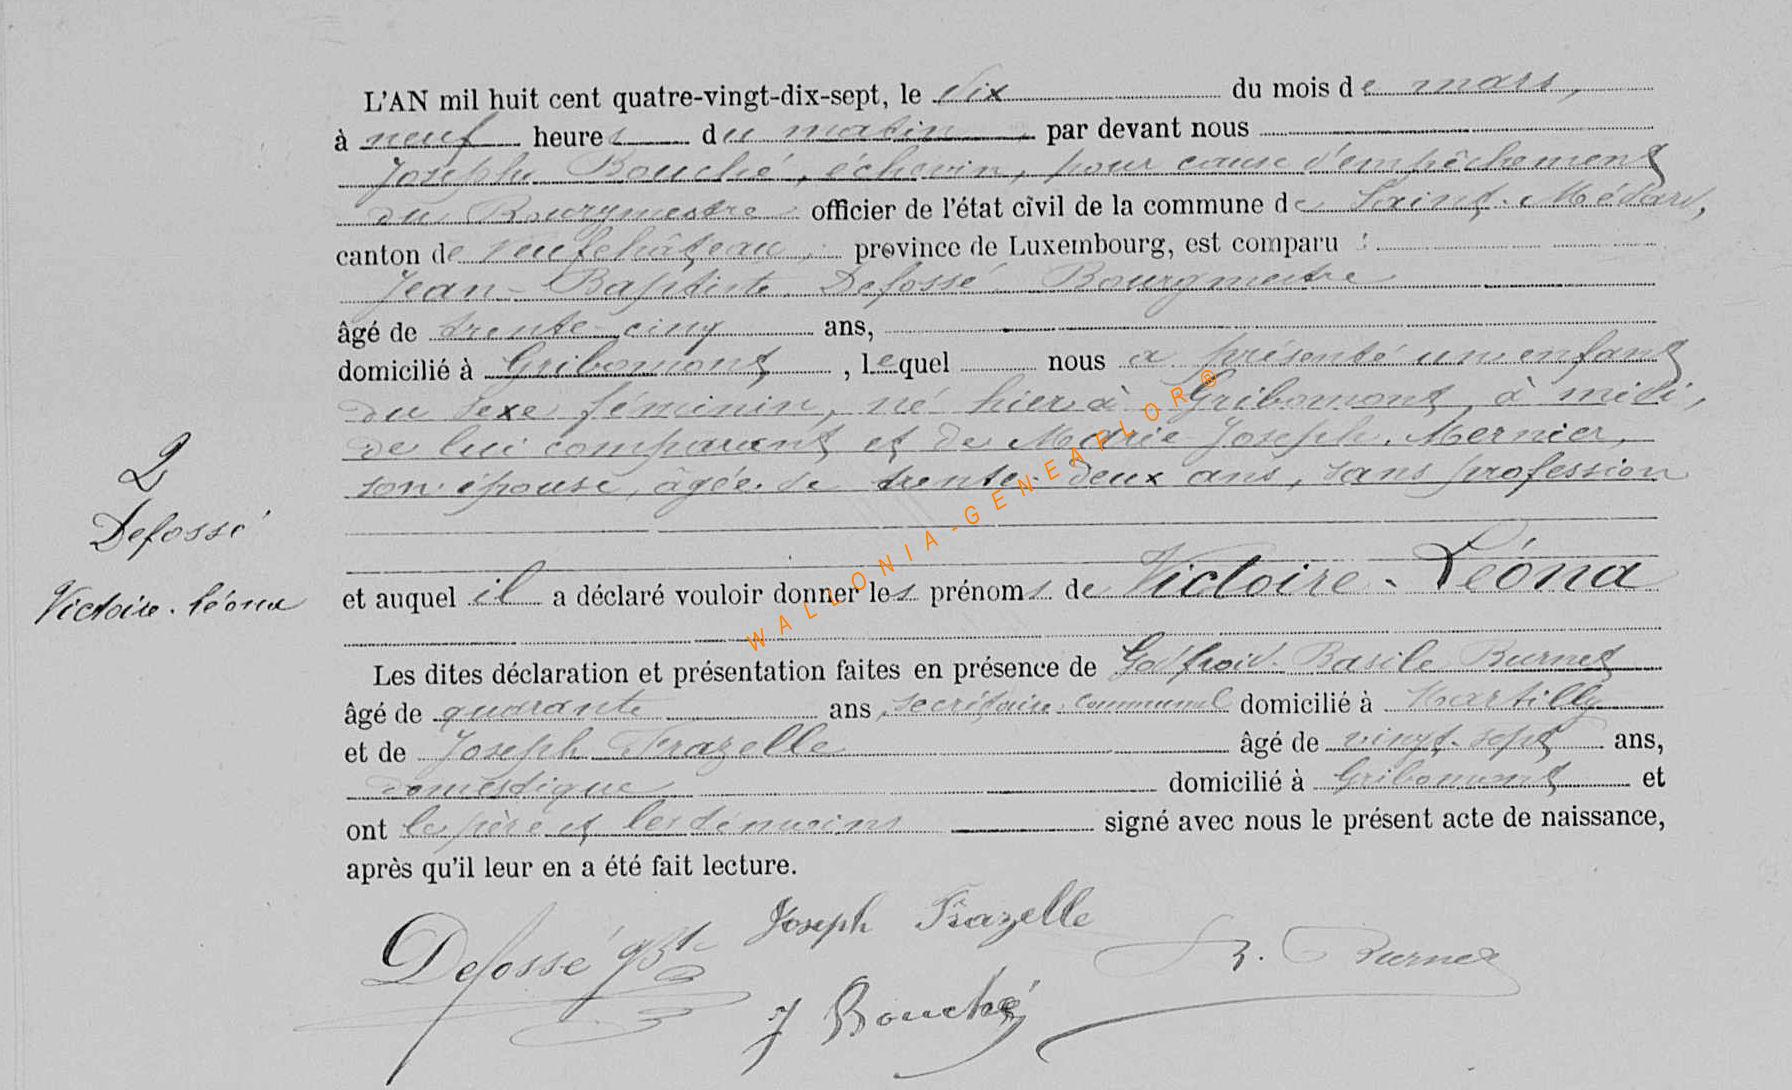 L'AN mil huit cent quatre-vingt-dix-sept, le dix du mois de mars,
à neuf heures du matin, par devant nous
Joseph Bouché, échevin, pour cause d'empêchement
du Bourgmestre officier de l'état civil de la commune de Saint-Médard,
canton de Neufchâteau, province de Luxembourg, est comparu :
Jean-Baptiste Defossé Bourgmestre
âgé de trente-cinq ans,
domicilié à Gribomont, lequel nous a présenté un enfant
du sexe féminin, né hier à Gribomont, à midi,
de lui comparant et de Marie Joseph Mernier,
son épouse, âgée de trente-deux ans, sans profession
2
Defossé
Victoire-Léona
et auquel il a déclaré vouloir donner les prénoms de Victoire-Léona
Les dites déclaration et présentation faites en présence de Godfroid Basile Burnet
âgé de quarante ans, secrétaire communal domicilié à Martilly
et de Joseph Frazelle âgé de vingt-sept ans,
domestique domicilié à Gribomont et
ont le père et les témoins signé avec nous le présent acte de naissance,
après qu'il leur en a été fait lecture.
Defossé JBte Joseph Frazelle B. Burnet
J Bouché
WALLONIA-GENEAFLOR®